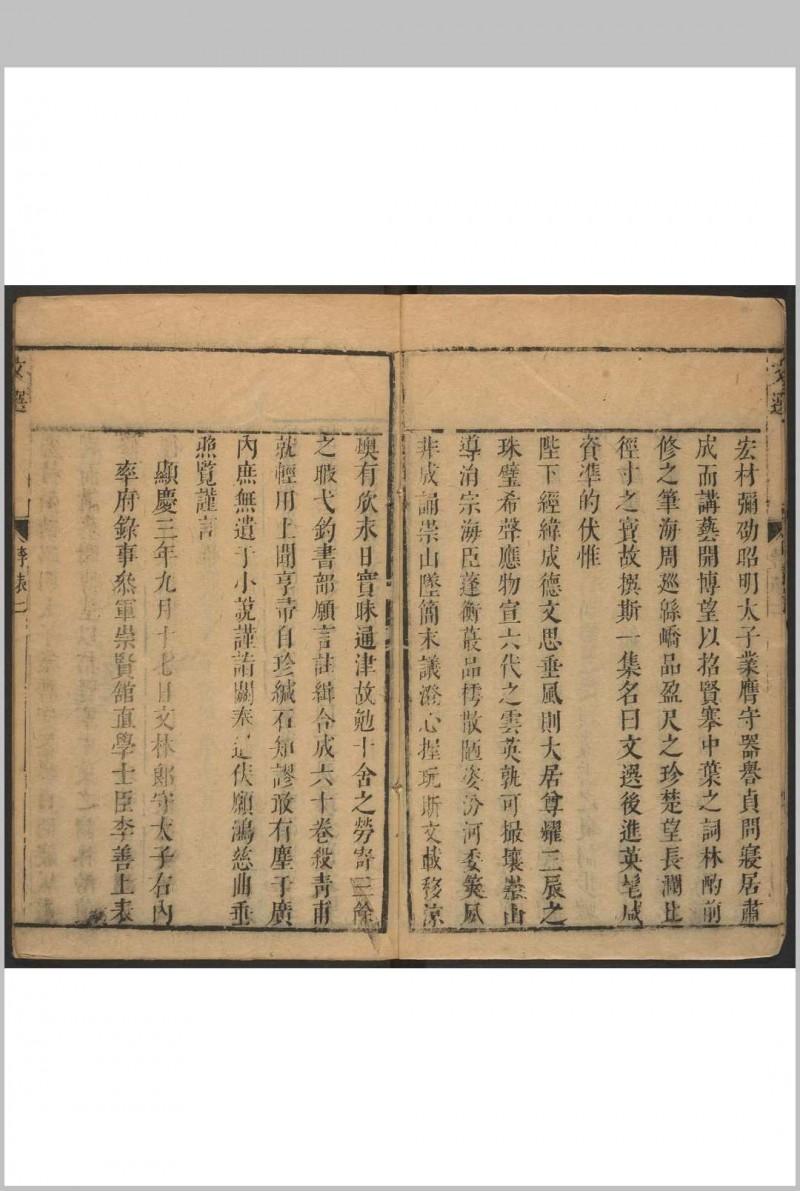 宏材彌劭昭明太子業膺守器譽貞問寢居肅
成而講藝開博望以招賢搴中葉之詞林酌前
修之筆海周巡緜嶠品盈尺之珍楚望長瀾比
徑寸之寶故撰斯一集名曰文選後進英髦咸
資準的伏惟
陛下經緯成德文思垂風則大居尊耀三辰之
珠璧希聲應物宣六代之雲英孰可撮壤崇山
導涓宗海臣蓬衡蕞品樗散陋姿汾河委筴夙
非成誦崇山墜簡未議澄心握玩斯文載移涼
燠有欣永日實昧通津故勉十舍之勞寄三餘
之暇弋釣書部願言註緝合成六十卷殺青甫
就輕用上聞享帚自珍緘石知謬敢有塵于廣
內庶無遺于小說謹詣闕奉進伏願鴻慈曲垂
照覽謹言
顯慶三年九月十七日文林郎守太子右內
率府錄事叅軍崇賢館直學士臣李善上表
文選
序表二
文選